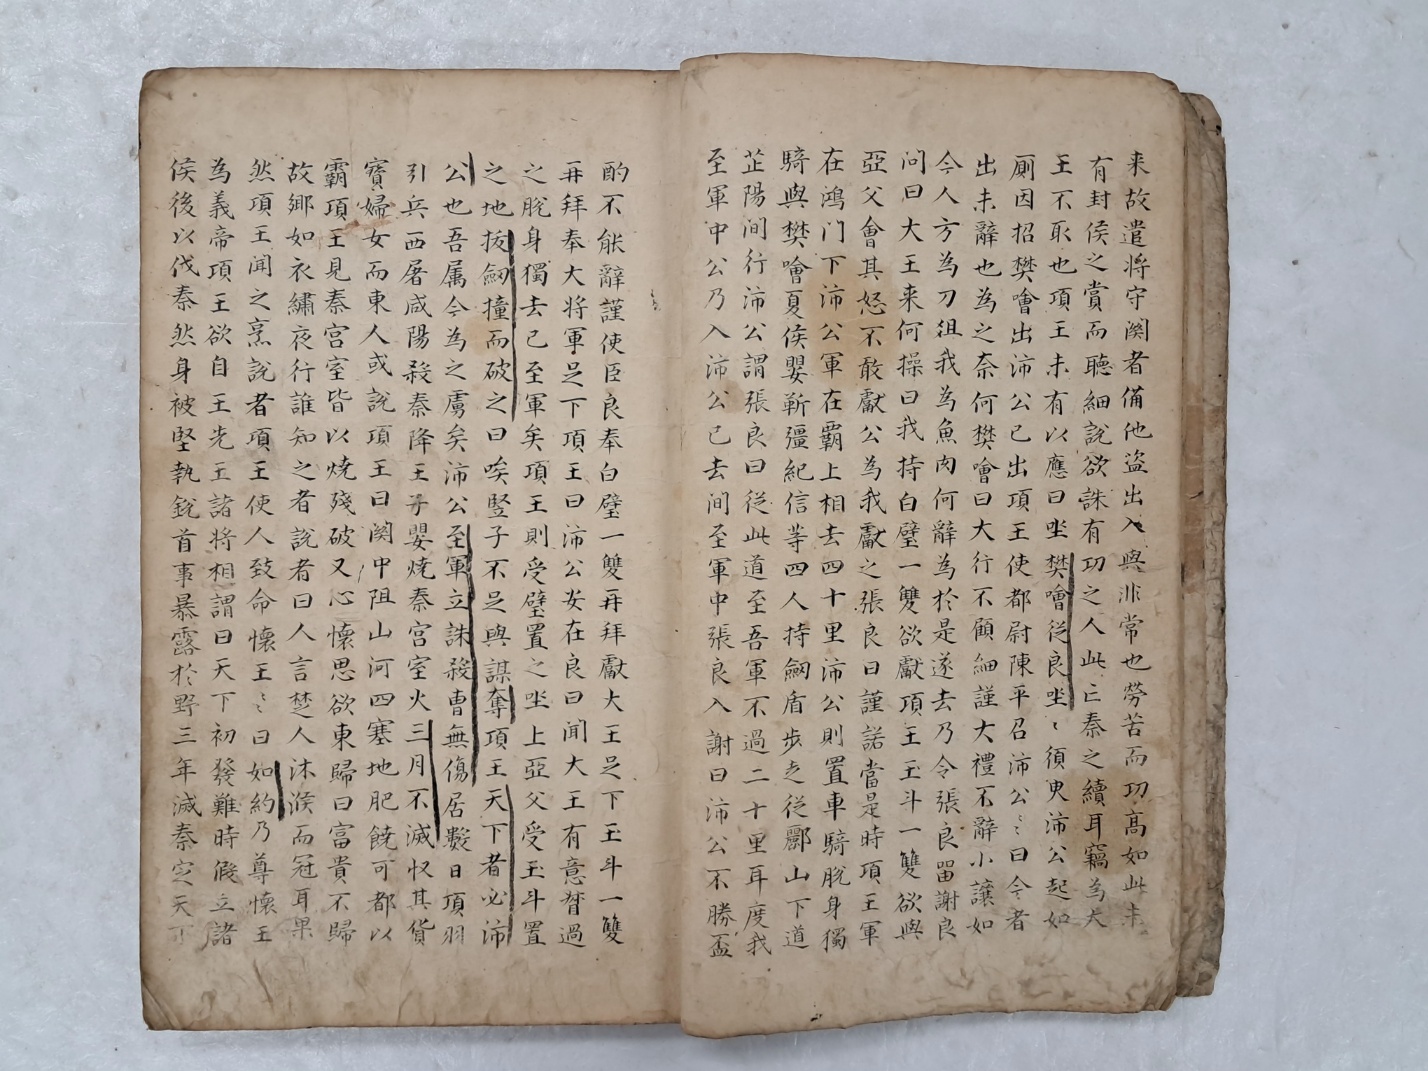 来故遣将守関者備他盗出入與非常也勞苦而功高如此未
有封侯之賞而聴細説欲誅有功之人此亡秦之續耳竊為大
王不取也項王未有以應曰坐樊噲従良坐〻須臾沛公起如
厠因招樊噲出沛公已出項王使都尉陳平召沛公〻曰今者
出未辭也為之奈何樊噲曰大行不顧細謹大禮不辭小讓如
今人方為刀俎我為魚肉何辭為於是遂去乃令張良留謝良
问曰大王来何操曰我持白璧一雙欲獻項王玉斗一雙欲與
亞父會其怒不敢獻公為我獻之張良曰謹諾當是時項王軍
在鴻门下沛公軍在覇上相去四十里沛公則置車騎脱身獨
騎與樊噲夏侯嬰靳彊紀信等四人持劔盾步走従酈山下道
芷陽间行沛公謂張良曰従此道至吾軍不過二十里耳度我
至軍中公乃入沛公已去间至軍中張良入謝曰沛公不勝盃
酌不能辭謹使臣良奉白璧一雙再拜獻大王足下玉斗一雙
再拜奉大将軍足下項王曰沛公安在良曰闻大王有意督過
之脱身獨去已至軍矣項王則受璧置之坐上亞父受玉斗置
之地拔劔撞而破之曰唉豎子不足與謀奪項王天下者必沛
公也吾属今為之虜矣沛公至軍立誅殺曹無傷居數日項羽
引兵西屠咸陽殺秦降王子嬰焼秦宫室火三月不滅収其貨
寳婦女而東人或説項王曰関中阻山河四塞地肥饒可都以
霸項王見秦宫室皆以焼殘破又心懐思欲東歸曰富貴不歸
故郷如衣繡夜行誰知之者説者曰人言楚人沐猴而冠耳果
然項王闻之烹説者項王使人致命懐王〻曰如約乃尊懐王
為義帝項王欲自王先王諸将相謂曰天下初發難時假立諸
侯後以伐秦然身被堅執鋭首事暴露於野三年滅秦定天下